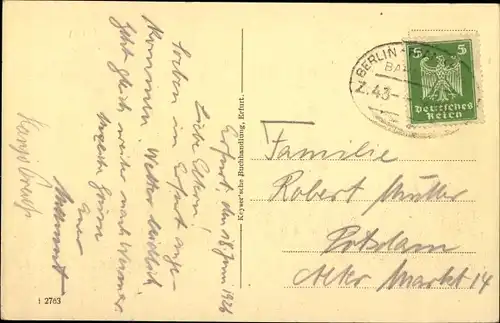 Erfurt, den 18. Juni 1926
Liebe Eltern!
Soeben in Erfurt ange-
kommen. Wetter leidlich.
Jetzt gleich weiter nach Weimar
Euer
Keyser'sche Buchhandlung, Erfurt.
1 2763
BERLIN
BA
Z.43-
5 5
Deutsches
Reich
Familie
Robert Müller
Potsdam
Alter Markt 14